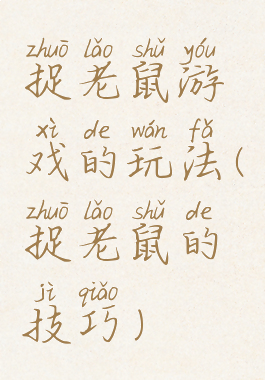 zhuō lǎo shǔ yóu
捉老鼠游
xì de wán fǎ
戏的玩法(
zhuō lǎo shǔ de
捉老鼠的
jì qiǎo
技巧)